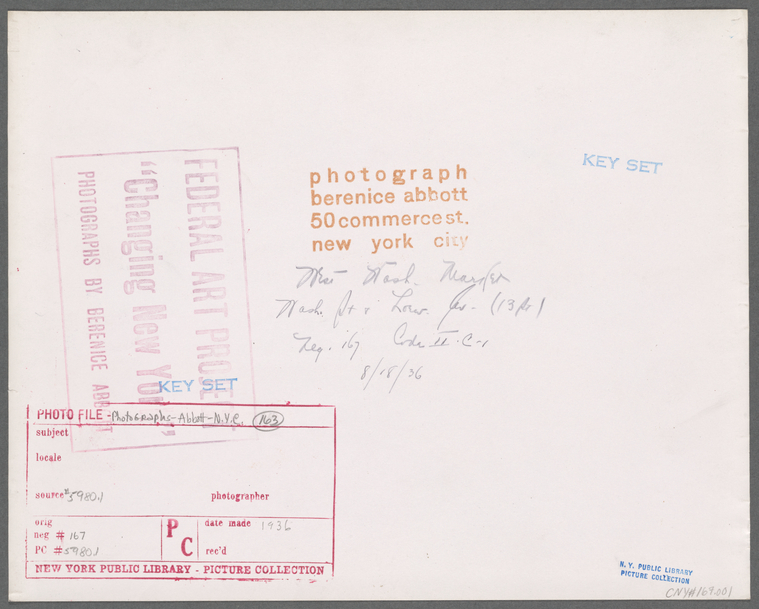 FEDERAL ART PROJE
"Changing New York"
PHOTOGRAPHS BY BERENICE ABBOTT
photograph
berenice abbott
50 commerce st.
new york city
KEY SET
West Wash. Market
Wash. St & Low. Av. (13 St)
Neg. 167 Code II-C-1
8/18/36
KEY SET
PHOTO FILE - Photographs-Abbott-N.Y.C. 163
subject
locale
source #5980.1 photographer
orig
neg # 167
PC # 5980.1
P C
date made 1936
rec'd
NEW YORK PUBLIC LIBRARY - PICTURE COLLECTION
N. Y. PUBLIC LIBRARY
PICTURE COLLECTION
CNY#169.001